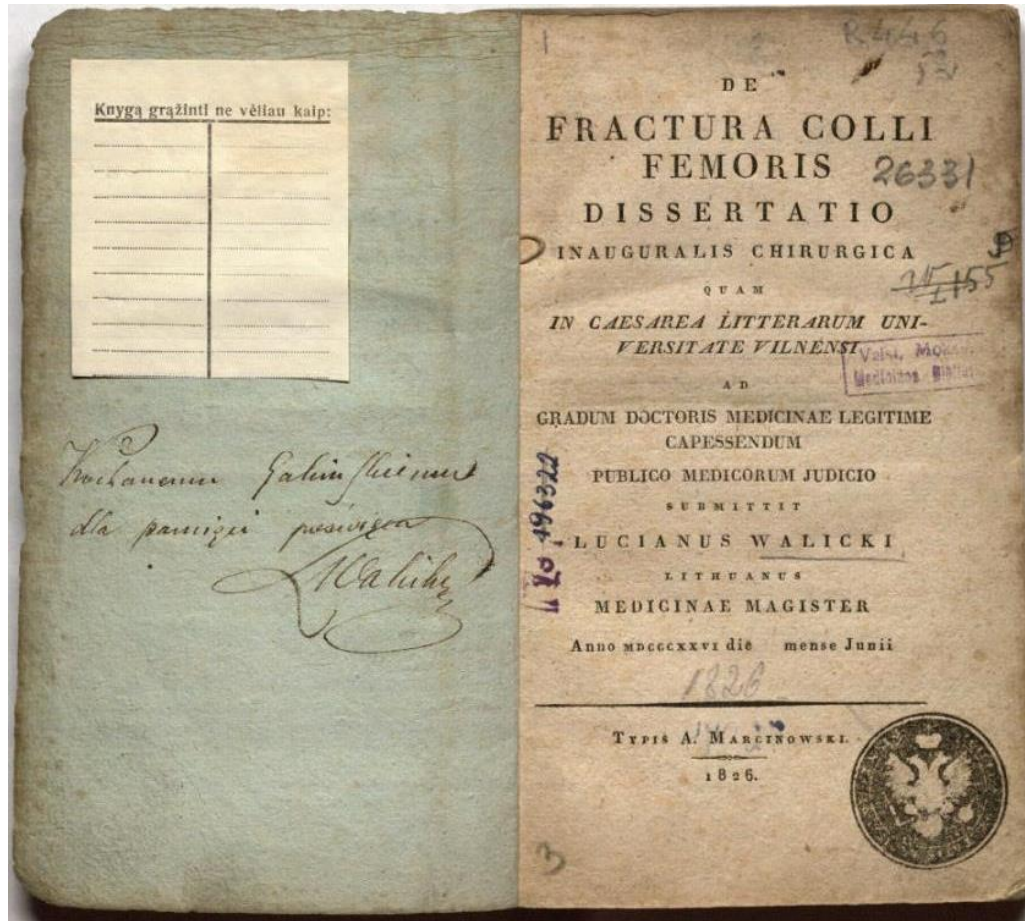 Knygą grąžinti ne vėliau kaip:
dla pamięci
LWalicki
1
DE
FRACTURA COLLI
FEMORIS
26331
DISSERTATIO
INAUGURALIS CHIRURGICA
QUAM
155
IN CAESAREA LITTERARUM UNI-
VERSITATE VILNENSI
Valst. 
Medicinos
AD
GRADUM DOCTORIS MEDICINAE LEGITIME
CAPESSENDUM
PUBLICO MEDICORUM JUDICIO
SUBMITTIT
496322
LUCIANUS WALICKI
LITHUANUS
MEDICINAE MAGISTER
Anno MDCCCXXVI die mense Junii
1826
TYPIS A. MARCINOWSKI.
1826.
3